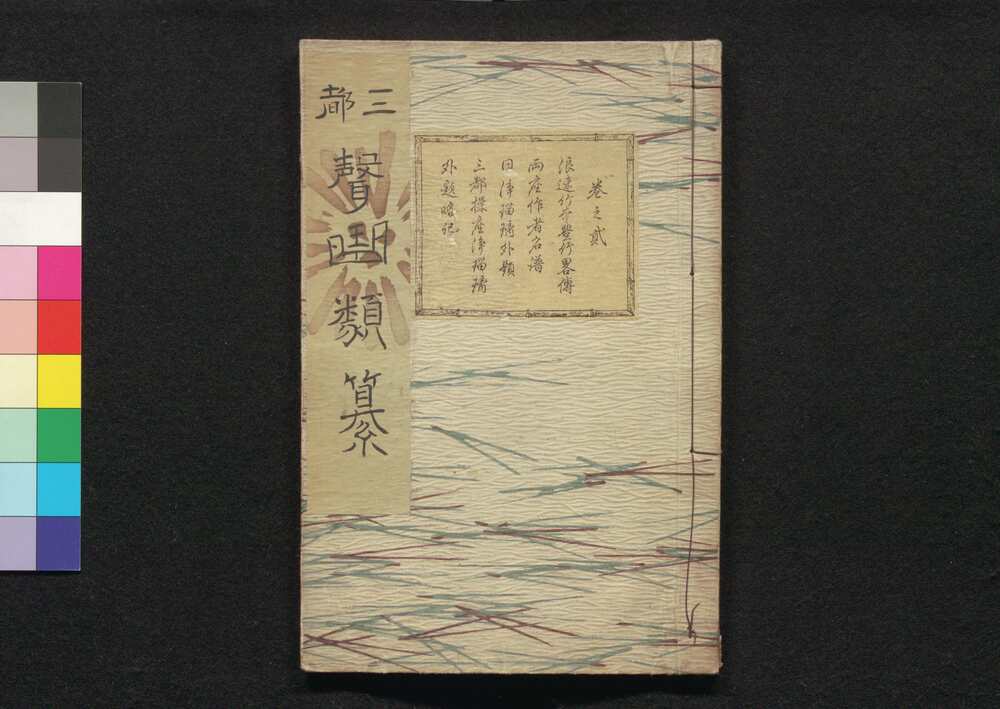 三都
聲曲類纂
卷之貳
浪速竹本豊竹畧傳
両座作者名譜
同浄瑠璃外題
三都操座浄瑠璃
外題略記